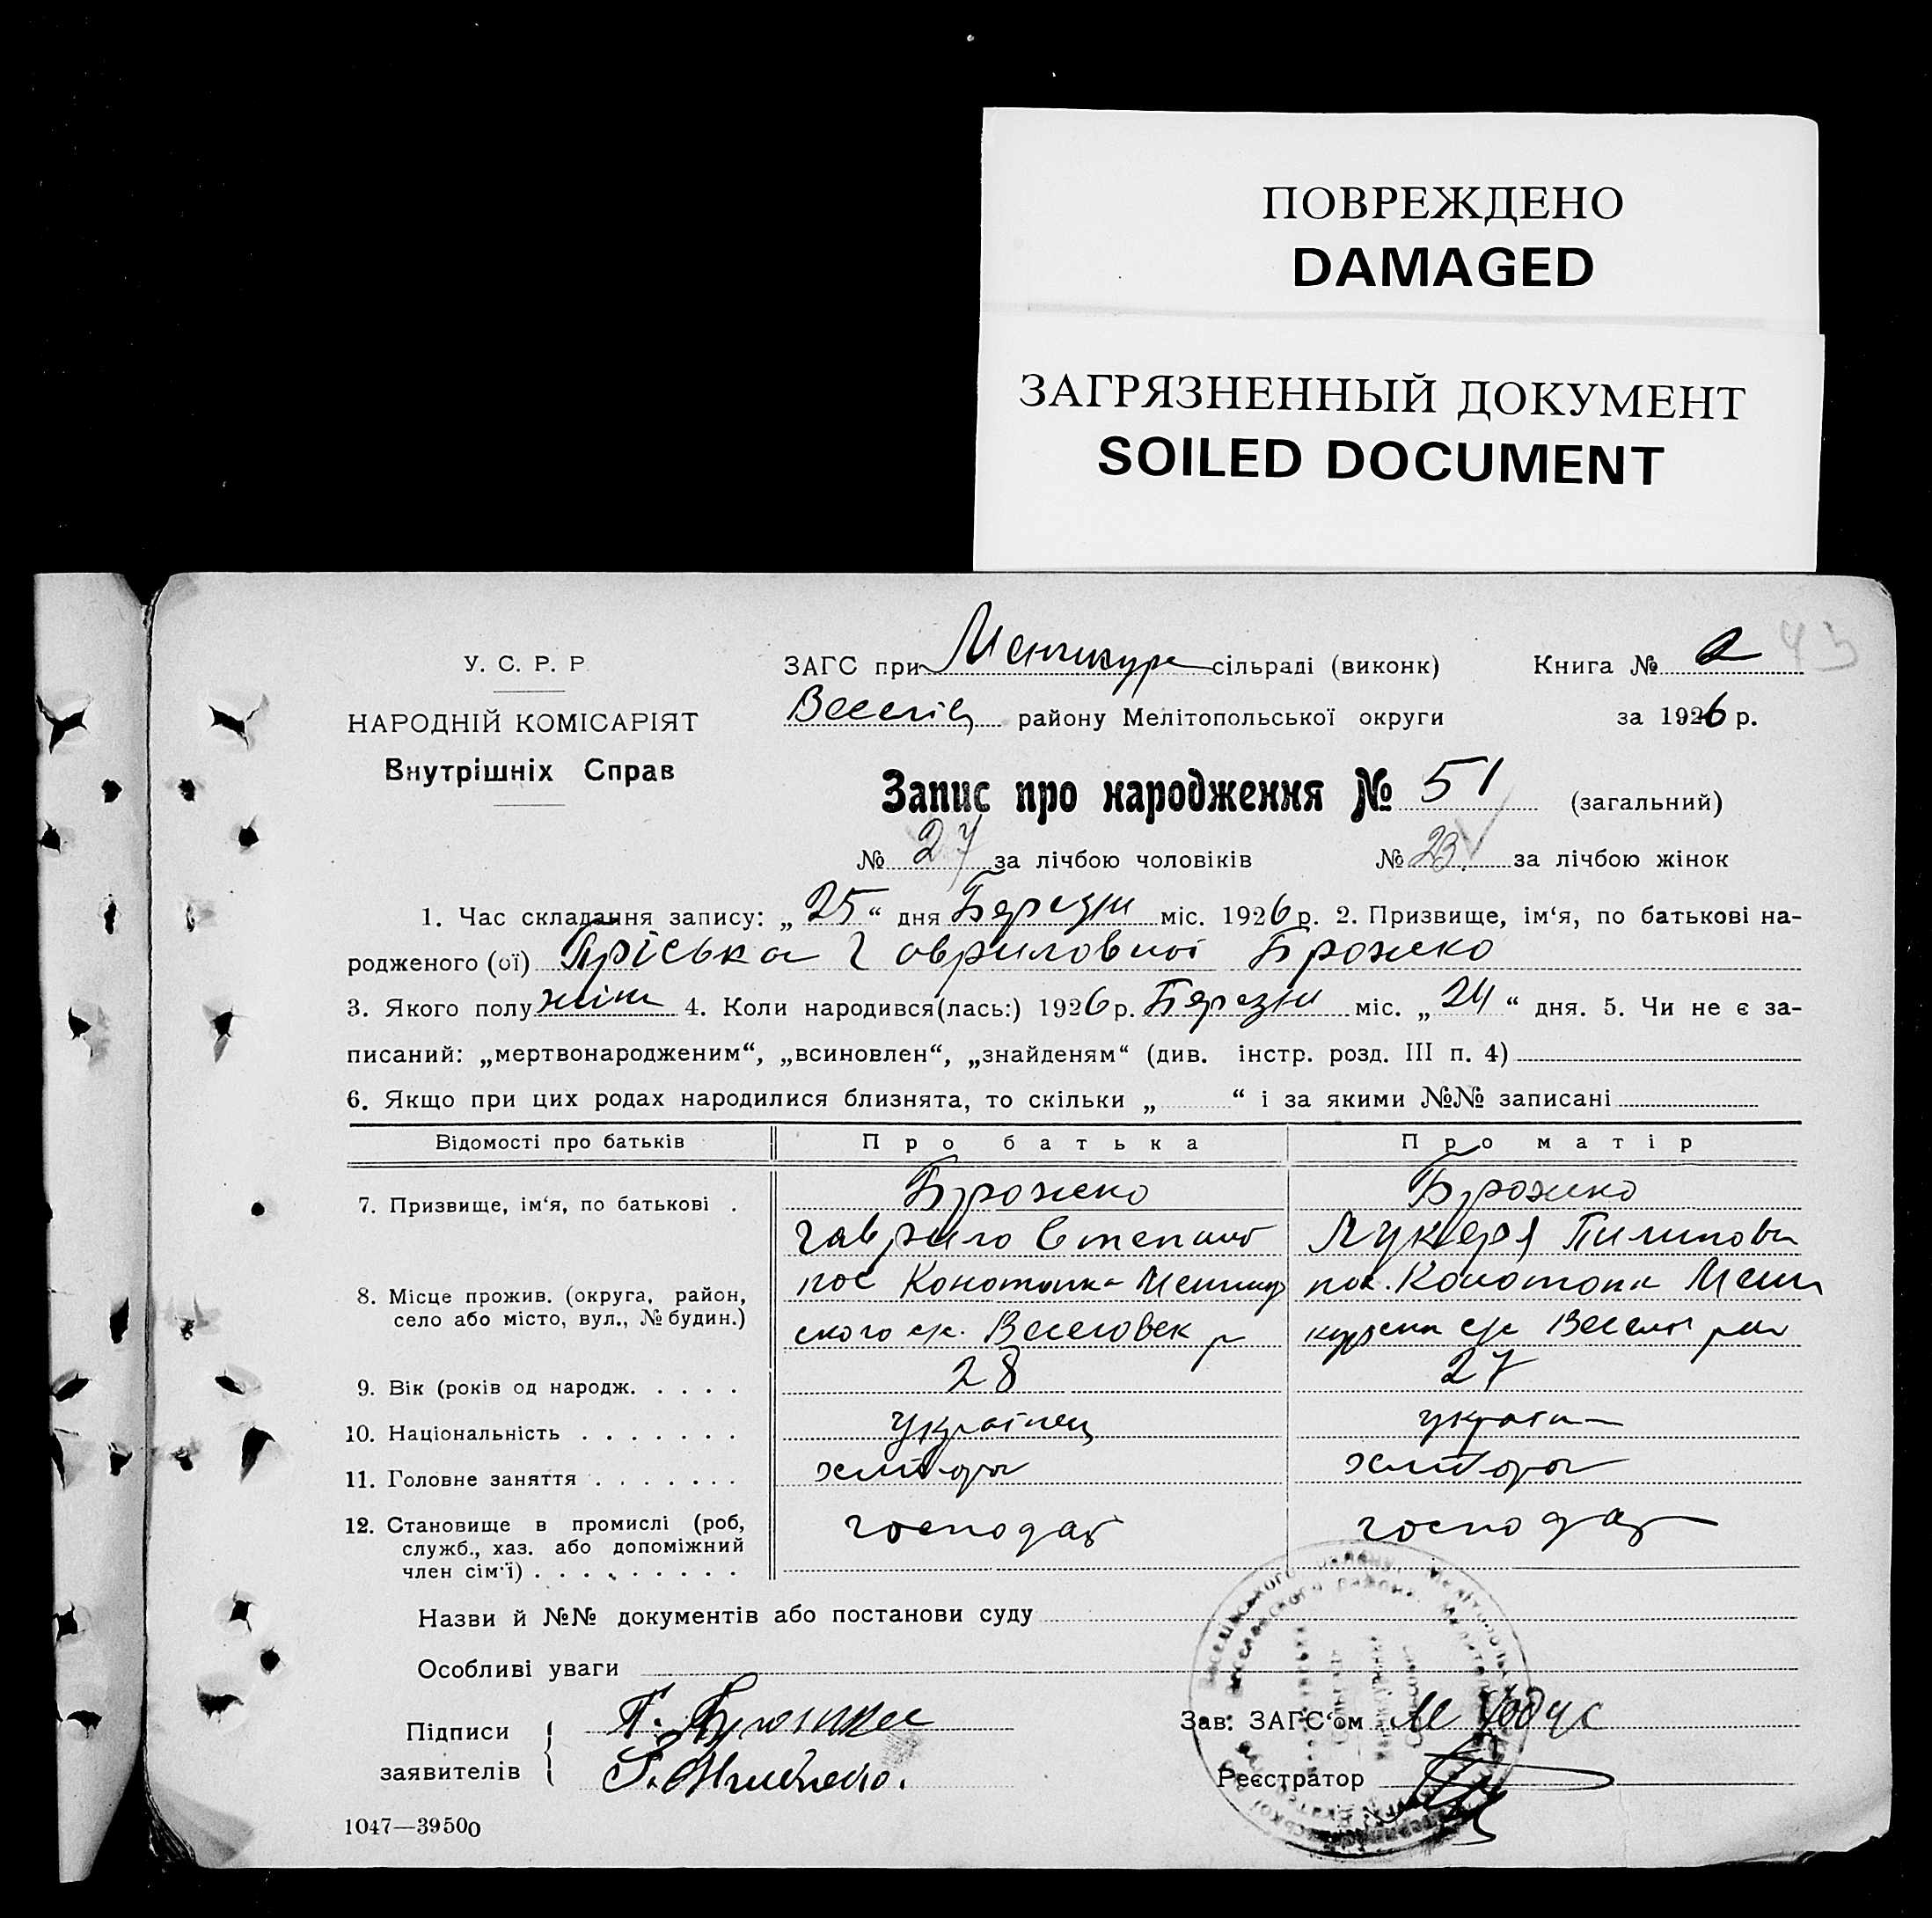 ПОВРЕЖДЕНО
DAMAGED
ЗАГРЯЗНЕННЫЙ ДОКУМЕНТ
SOILED DOCUMENT
43
У. С. Р. Р
НАРОДНІЙ КОМІСАРІЯТ
Внутрішніх Справ
ЗАГС при Менчикур сільраді (виконк) Книга № 2
Веселів району Мелітопольської округи за 1926 р.
Запис про народження № 51 (загальний)
№ 27 за лічбою чоловіків № 23 за лічбою жінок
1. Час складання запису: „25“ дня Березня міс. 1926 р. 2. Призвище, ім‘я, по батькові на-
родженого (ої) Пріська Гавриловної Брожко
3. Якого полу жін 4. Коли народився(лась:) 1926 р. Березня міс. „24“ дня. 5. Чи не є за-
писаний: „мертвонародженим“, „всиновлен“, „знайденям“ (див. інстр. розд. III п. 4)
6. Якщо при цих родах народилися близнята, то скільки „ “ і за якими №№ записані
Відомості про батьків Про батька Про матір
7. Призвище, ім‘я, по батькові . Брожко Брожко
Гаврило Степан Лукеря Пилипов
8. Місце прожив. (округа, район, село або місто, вул., № будин.) пос Конотопка Менчикур пос. Конотопка Менчи
ского с/с. Веселовск р курска с/с Весел рай
9. Вік (років од народж. . . . . 28 27
10. Національність . . . . . . . українец україн
11. Головне заняття . . . . . . . хлібороб хлібороб
12. Становище в промислі (роб, служб., хаз. або допоміжний член сім‘ї) . . . . . . . . . господар господар
Назви й №№ документів або постанови суду
Особливі уваги
Підписи заявителів Г. Брожко
Зав. ЗАГС‘ом
Реєстратор
1047—39500